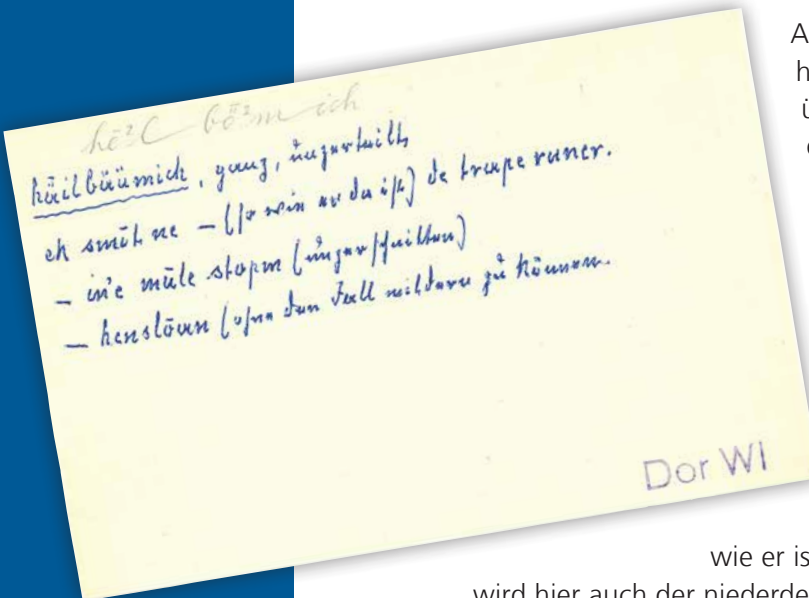 hē²l bȫ²m ich
häilbäümich, ganz, unzerteilt
ek smīt ne – (so wie er da ist) de trape runer.
– in'e mūle stopm (unzerschnitten)
– henslōun (ohne den Fall mildern zu können.
Dor WI
A
h
ü
wie er is
wird hier auch der niederde